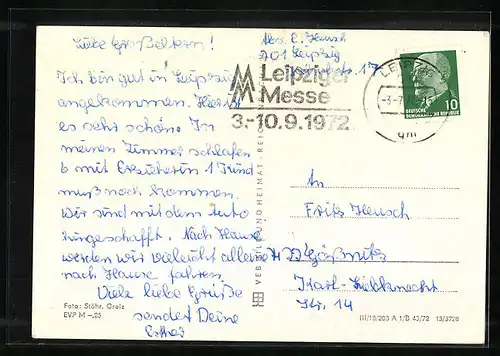 Liebe Großeltern!
Ich bin gut in Leipzig
angekommen. Hier ist
es sehr schön. In
meinen Zimmer schlafen
6 mit Erzieherin 1 Kind
muß noch kommen.
Wir sind mit dem Auto
hingeschafft. Nach Hause
werden wir vielleicht alleine
nach Hause fahren.
Viele liebe Grüße
sendet Deine
Esther
Foto: Stöhr, Greiz
EVP M –,25
Abs. E. Hensch
701 Leipzig
17
Leipziger
Messe
3.-10.9.1972
LEIPZIG
10
DEUTSCHE
DEMOKRATISCHE REPUBLIK
VEB BILD UND HEIMAT
An
Fritz Hensch
Gößnitz
Karl-Liebknecht
Str. 14
III/18/203 A 1/B 43/72 13/3726